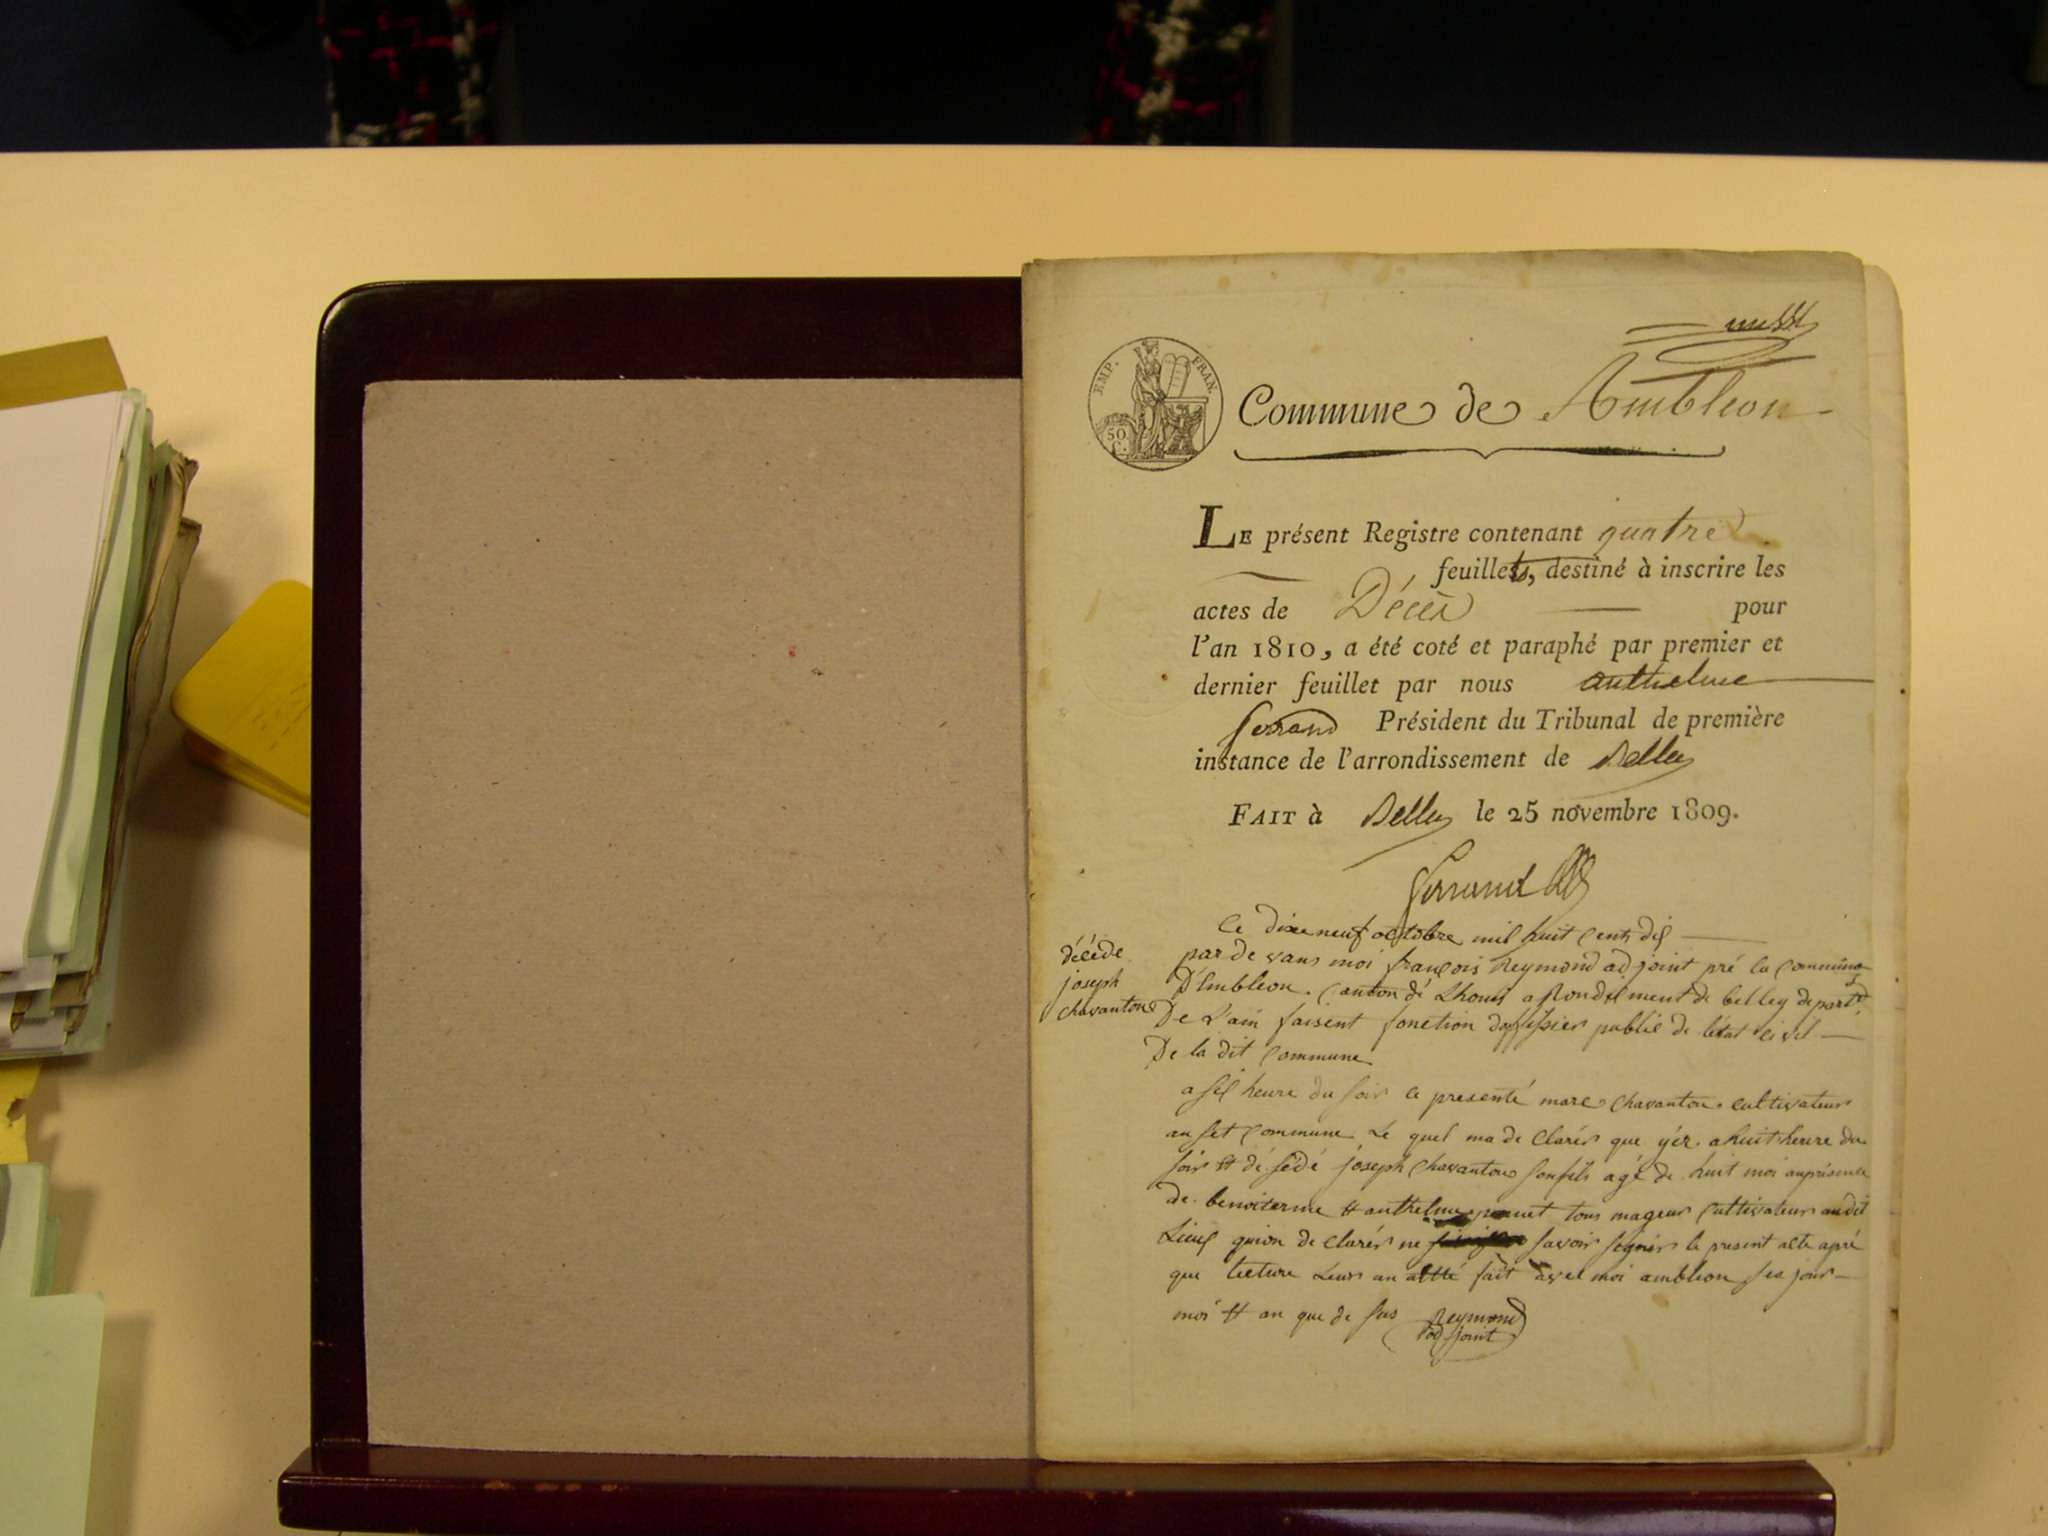 EMP. FRAN.
50 C.
Commune de Ambléon
LE présent Registre contenant quatre
feuillets, destiné à inscrire les
actes de Décès pour
l'an 1810, a été coté et paraphé par premier et
dernier feuillet par nous anthelme
ferrand Président du Tribunal de première
instance de l'arrondissement de Belley
FAIT à Belley le 25 novembre 1809.
ferrand
décéde
joseph
chavanton
Ce dixe neuf octobre mil huit cents dix
par de vans moi françois Reymond adjoint pré la commune
D'Embleon. canton dé Lhouis arondisment de belley depart.
De L'ain faisent fonction doffisier publié de létat civil
De la dit commune
a sis heure du soir ce presenté marc chavanton cultivateur
au set commune Le quel ma de clarér que yér a huit heure du
soir et dé sédé joseph chavanton sonfils agé de huit moi anprésence
de benoit et anthelme tous mageur cultivateur audit
Lieus quion de clarér ne savoir signér le present acte apré
que lecture Leur an faît avec moi ambleon ses jour
moi et an que de sus Reymond
adjoint